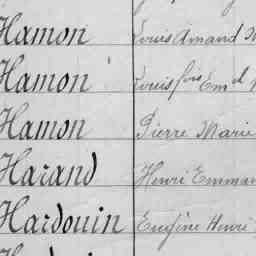 Hamon Louis Amand
Hamon Louis fois Em el
Hamon Pierre Marie
Harand Henri Emman
Hardouin Eugène Henri